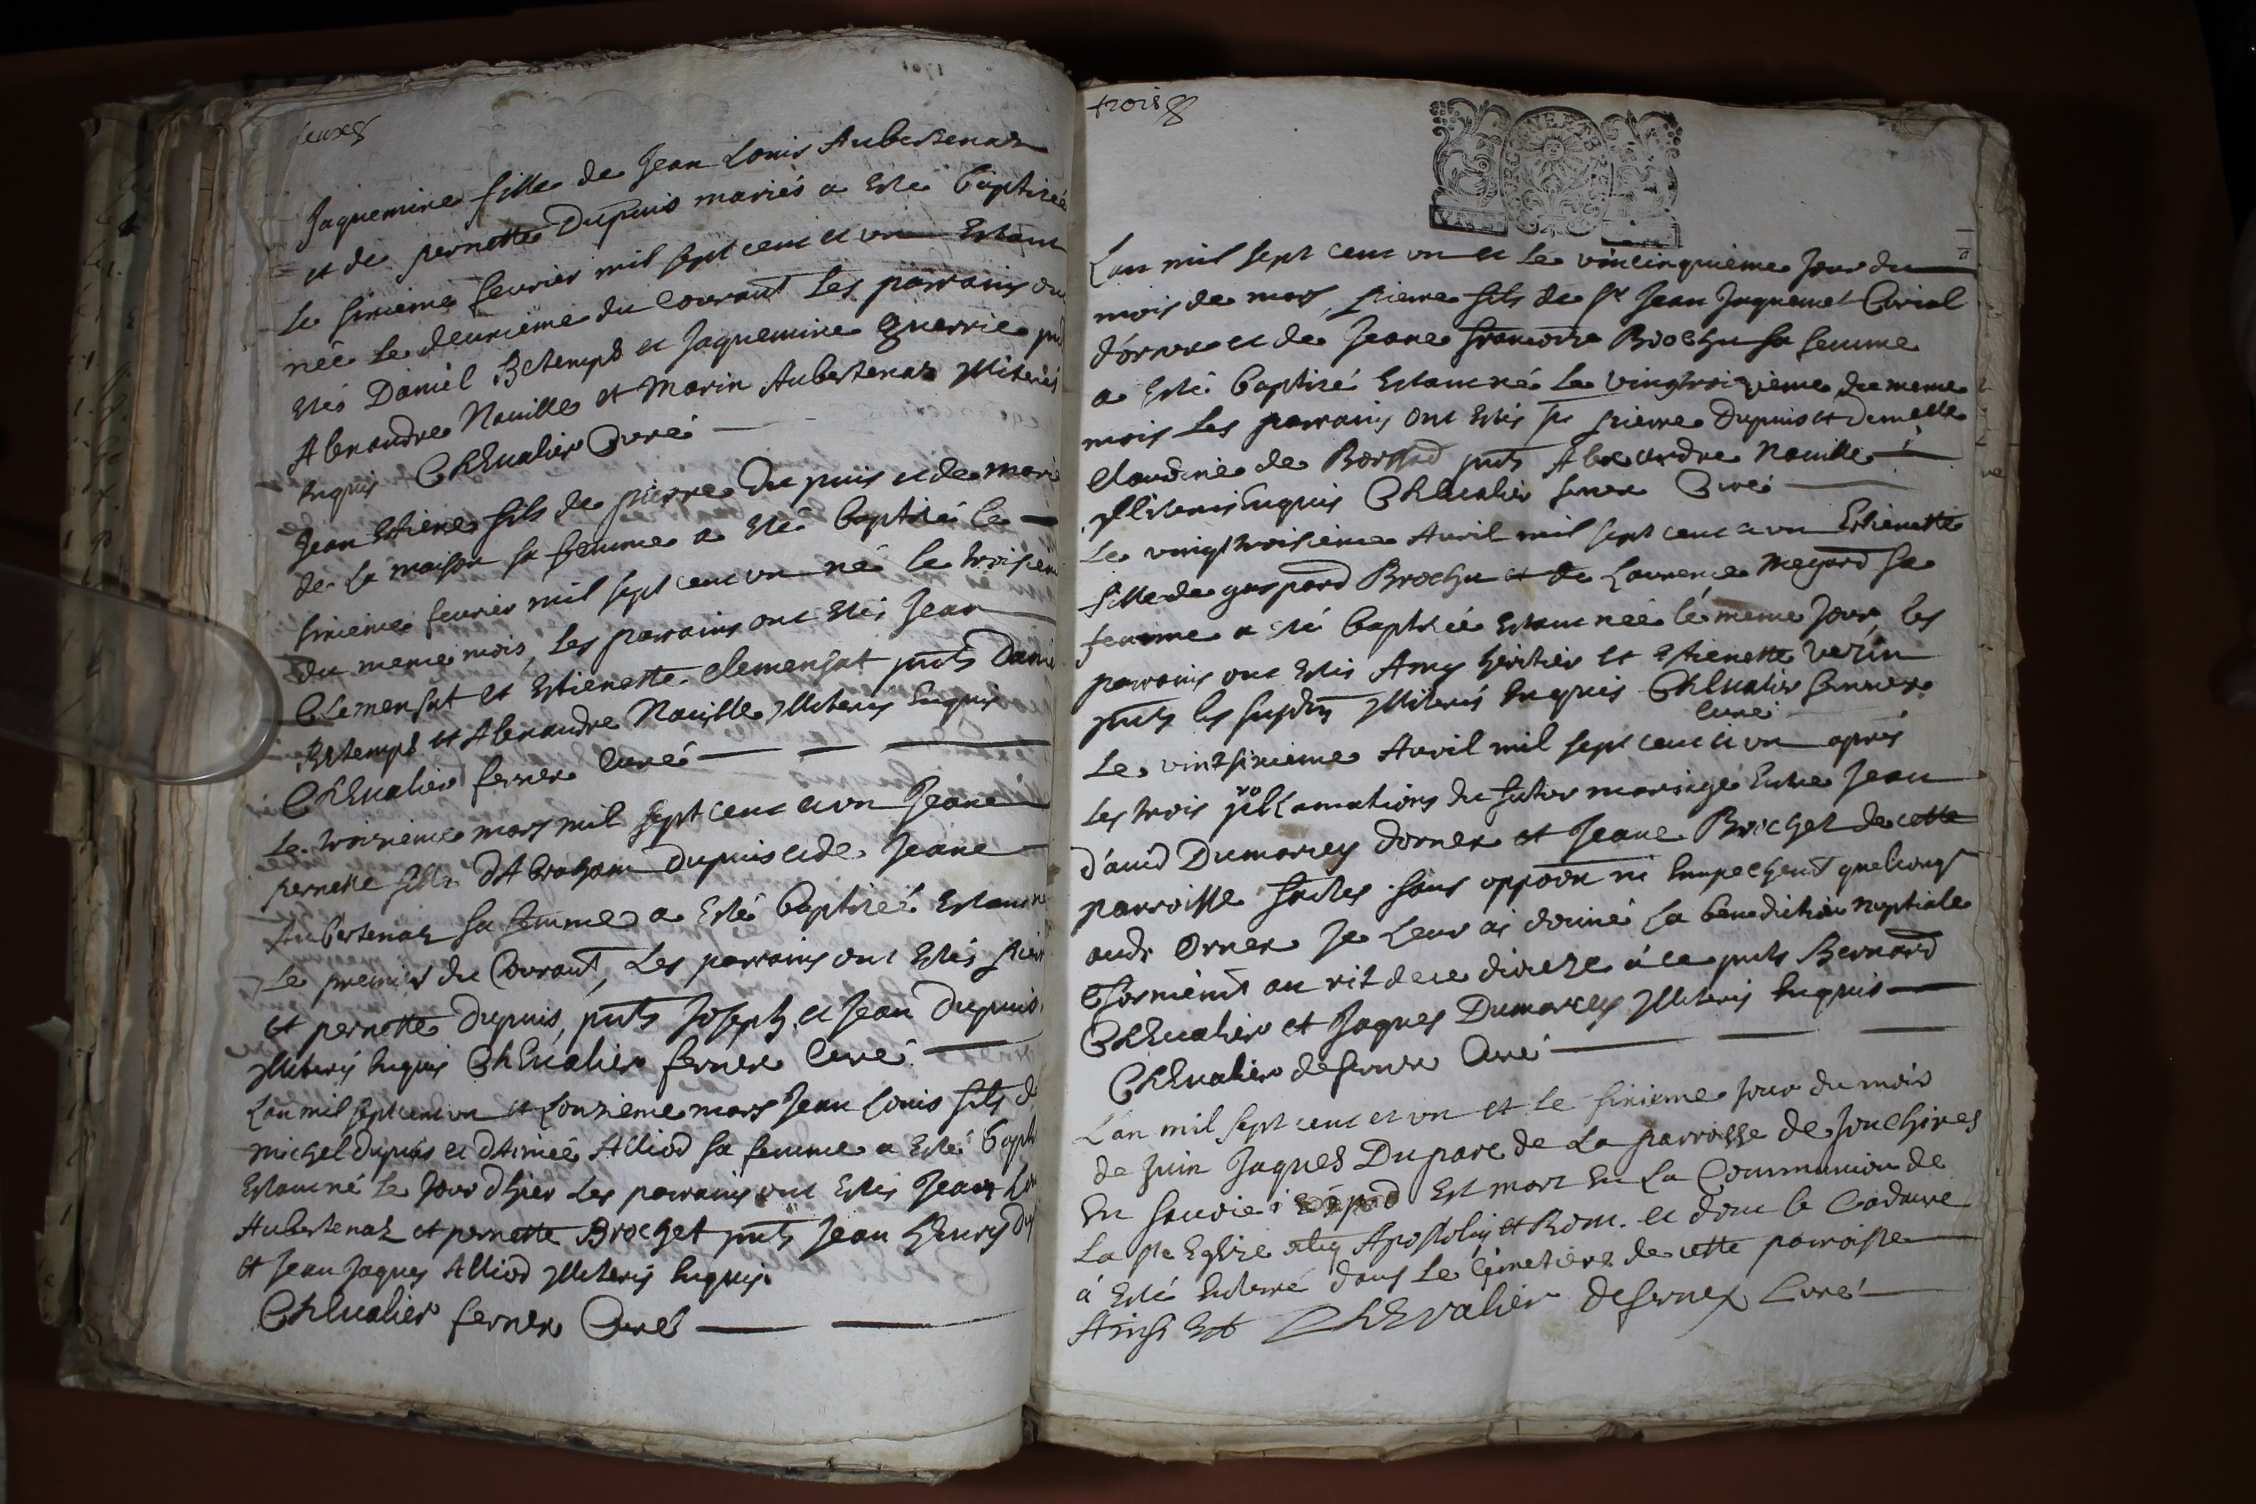 deuxe
1701
Jaquemine fille de Jean Louis Aubertenaz
et de pernette Dupuis mariés a este baptisée
le sixieme feurier mil sept cent et un Estant
née le deuxieme du Courant Les parrains on
Estés Daniel Betemps et Jaquemine guerrie
Alexandre Nouille et Marin Aubertenaz Jlliterés
Enquis Chevalier Curé
Jean Estiene fils de pierre Dupuis et de marie
de la maison sa femme a esté baptisé le
sixieme feurier mil sept cent un né le troisiem
du meme mois, Les parrains ont Estés Jean
Clemensat et Estienette Clemensat pnts Dani
Betemps et Alexandre Nouille Jlliterés Enquis
Chevalier fernex Curé
Le troisieme mars mil sept cent et un Jeane
pernette fille d'Abraham dupuis et de Jeane
Aubertenaz sa femme a esté baptiseé Estant né
Le premier du Courant, Les parrains ont Estés pier
et pernette Dupuis, pnts Joseph et Jean Dupuis
Jlliterés Enquis Chevalier fernex Curé
Lan mil sept cent un et Lonzieme mars Jean Louis fils de
michel dupuis et d'Aimeé Alliod sa femme a Esté bapti
Estant né le Jour d'hier Les parrains ont Estés Jean Lou
Aubertenaz et pernette Brochet pnts Jean henry Du
et Jean Jaques Alliod Jlliterés Enquis
Chevalier fernex Curé
trois
Lan mil sept cent un et Le vincinquième Jour du
mois de mars, pierre fils de Sr Jean Jaquemet Corial
d'ornex et de Jeane françoize Brochu sa femme
a Esté baptizé Estant né Le vingtroizième du meme
mois Les parrains ont Estés sr pierre Dupuis et demelle
Claudine de pnts Alexandre Nouille
Jlliterés Enquis Chevalier fernex Curé
Le vingttroisieme Auril mil sept cent et un Estienette
fille de gaspard Brochu et de Laurence Megard sa
femme a été baptisée estant née le meme Jour, les
parrains ont Estés Amy heritier et Estienette vezin
pnts les susdts Jlliterés Enquis Chevalier fernex
Curé
Le vintsixieme Auril mil sept cent et un après
Les trois proclamations du futur mariage Entre Jean
d'auid Dumarcey dornex et Jeane Brochet de cette
parroisse faites sans oppoon ni Empechent quelconqs
audt Ornex Je Leur ai donné La benediction nuptiale
Chormémt au rit de ce dioceze à ce pnts Bernard
Chevalier et Jaques Dumarcey Jlliterés Enquis
Chevalier de fernex Curé
L'an mil sept cent et un et le sixieme Jour du mois
de Juin Jaques Duparc de La parroisse de Jouchires
En sauoie est mort En La Communion de
La Ste Eglize Apostoliq et Rom. et donc le Cadaure
à Esté Enterré dans Le Cemetiere de cette parroisse
Ainsi Est Chevalier de fernex Curé